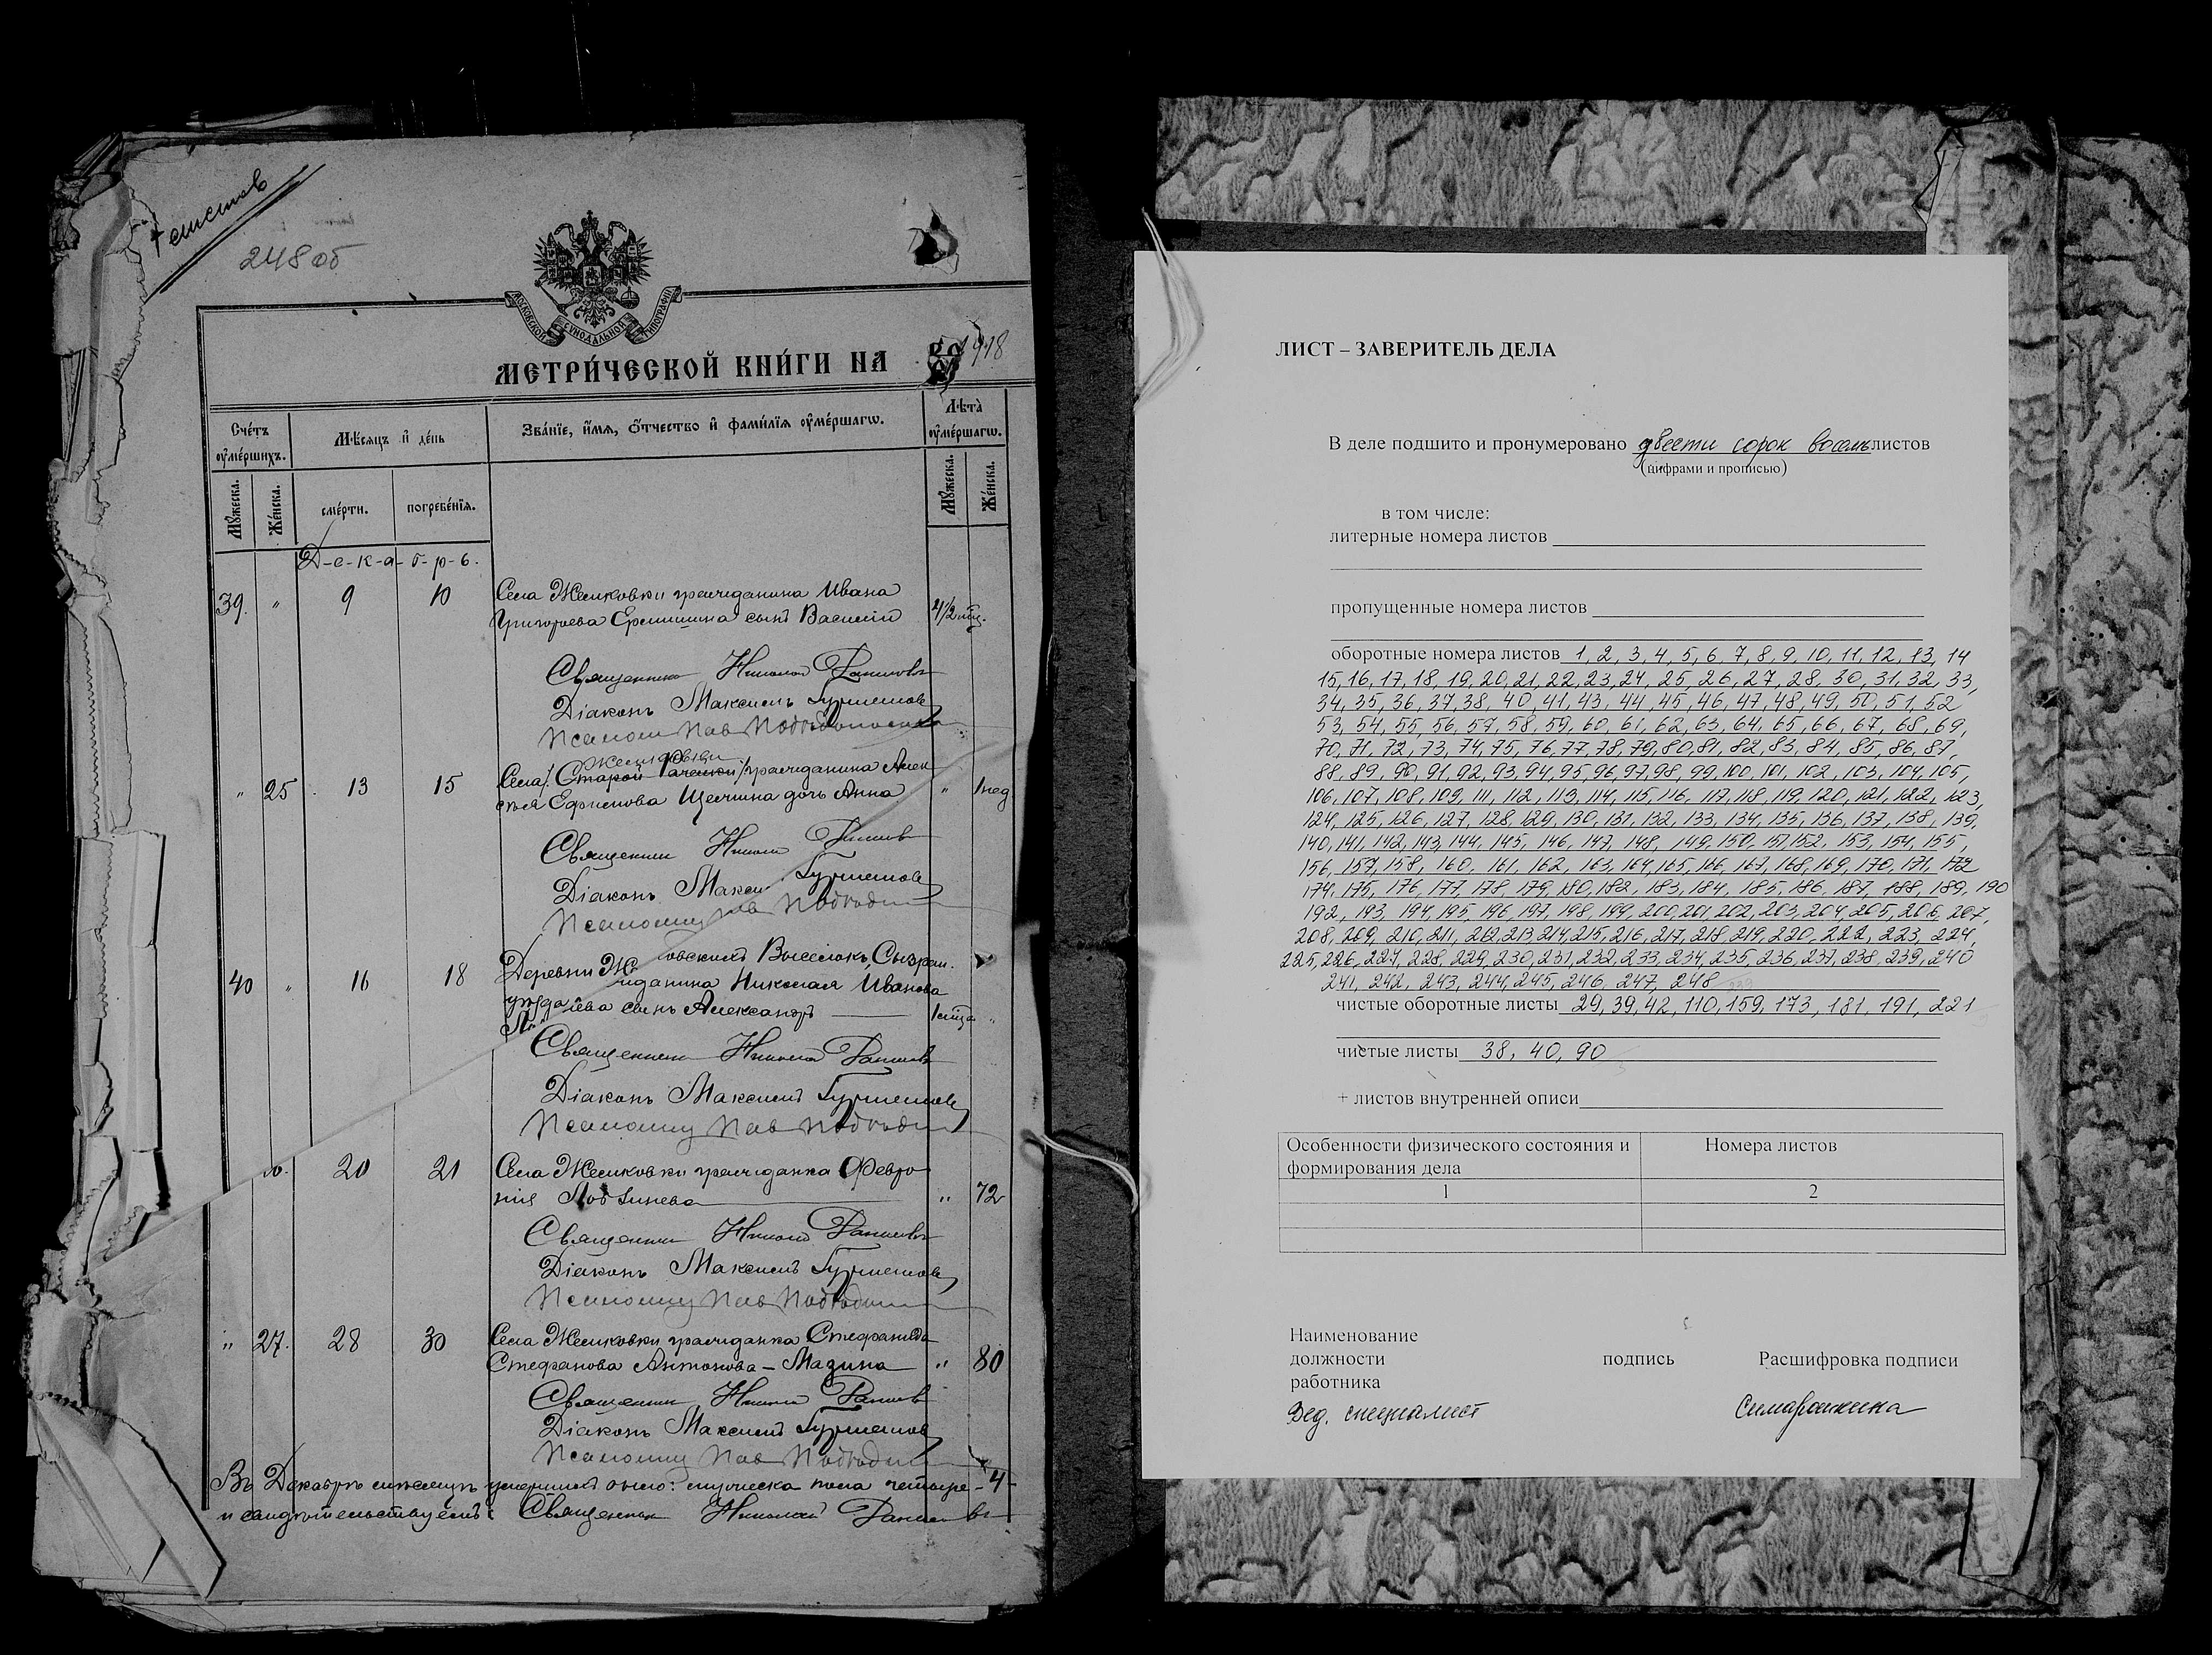 248 об
МОСКОВСКОЙ СУНОДАЛЬНОЙ ТИПОГРАФІИ
МЕТРИ́ЧЕСКОЙ КНИ́ГИ НА 1918
Сче́тъ оу҆ме́ршихъ.
Мѣ́сяцъ и҆ де́нь
Зва́нїе, и҆́мѧ, ѻ҆́тчество и҆ фами́лїѧ оу҆ме́ршагѡ.
Лѣ́та оу҆ме́ршагѡ.
Мꙋ́жеска.
Же́нска.
сме́рти.
погребе́нїѧ.
Мꙋ́жеска.
Же́нска.
Д-е-к-а-б-р-ь.
39. " 9 10 Села Жемковки гражданина Ивана
Григорьева сынъ Василій
Священникъ Николай
Діаконъ Максимъ
Села Старой гражданина Алек
" 25 13 15 сѣя Ефимова дочь Анна " 1 нед
Священникъ Николай
Діаконъ Максимъ
40 " 16 18 Деревни Выселокъ, Сызран.
Николая Иванова
сынъ Александръ
Священникъ Николай
Діаконъ Максимъ
20 21 Села Жемковки гражданка Февро
нія " 72
Священникъ Николай
Діаконъ Максимъ
" 27. 28 30 Села Жемковки гражданка Стефанида
Стефанова Антонова-Мазина " 80
Священникъ Николай
Діаконъ Максимъ
Въ Декабрѣ мѣсяцѣ умершихъ было: мужеска пола четыре -4-
и свидѣтельствуемъ: Священникъ Николай
ЛИСТ – ЗАВЕРИТЕЛЬ ДЕЛА
В деле подшито и пронумеровано двести сорок восемь листов
(цифрами и прописью)
в том числе:
литерные номера листов
пропущенные номера листов
оборотные номера листов 1, 2, 3, 4, 5, 6, 7, 8, 9, 10, 11, 12, 13, 14
15, 16, 17, 18, 19, 20, 21, 22, 23, 24, 25, 26, 27, 28, 30, 31, 32, 33,
34, 35, 36, 37, 38, 40, 41, 43, 44, 45, 46, 47, 48, 49, 50, 51, 52
53, 54, 55, 56, 57, 58, 59, 60, 61, 62, 63, 64, 65, 66, 67, 68, 69,
70, 71, 72, 73, 74, 75, 76, 77, 78, 79, 80, 81, 82, 83, 84, 85, 86, 87,
88, 89, 90, 91, 92, 93, 94, 95, 96, 97, 98, 99, 100, 101, 102, 103, 104, 105,
106, 107, 108, 109, 111, 112, 113, 114, 115, 116, 117, 118, 119, 120, 121, 122, 123,
124, 125, 126, 127, 128, 129, 130, 131, 132, 133, 134, 135, 136, 137, 138, 139,
140, 141, 142, 143, 144, 145, 146, 147, 148, 149, 150, 151, 152, 153, 154, 155,
156, 157, 158, 160, 161, 162, 163, 164, 165, 166, 167, 168, 169, 170, 171, 172
174, 175, 176, 177, 178, 179, 180, 182, 183, 184, 185, 186, 187, 188, 189, 190
192, 193, 194, 195, 196, 197, 198, 199, 200, 201, 202, 203, 204, 205, 206, 207,
208, 209, 210, 211, 212, 213, 214, 215, 216, 217, 218, 219, 220, 222, 223, 224,
225, 226, 227, 228, 229, 230, 231, 232, 233, 234, 235, 236, 237, 238, 239, 240
241, 242, 243, 244, 245, 246, 247, 248
чистые оборотные листы 29, 39, 42, 110, 159, 173, 181, 191, 221
чистые листы 38, 40, 90
+ листов внутренней описи
Особенности физического состояния и формирования дела
Номера листов
1
2
Наименование
должности
работника
подпись
Расшифровка подписи
Вед. специалист